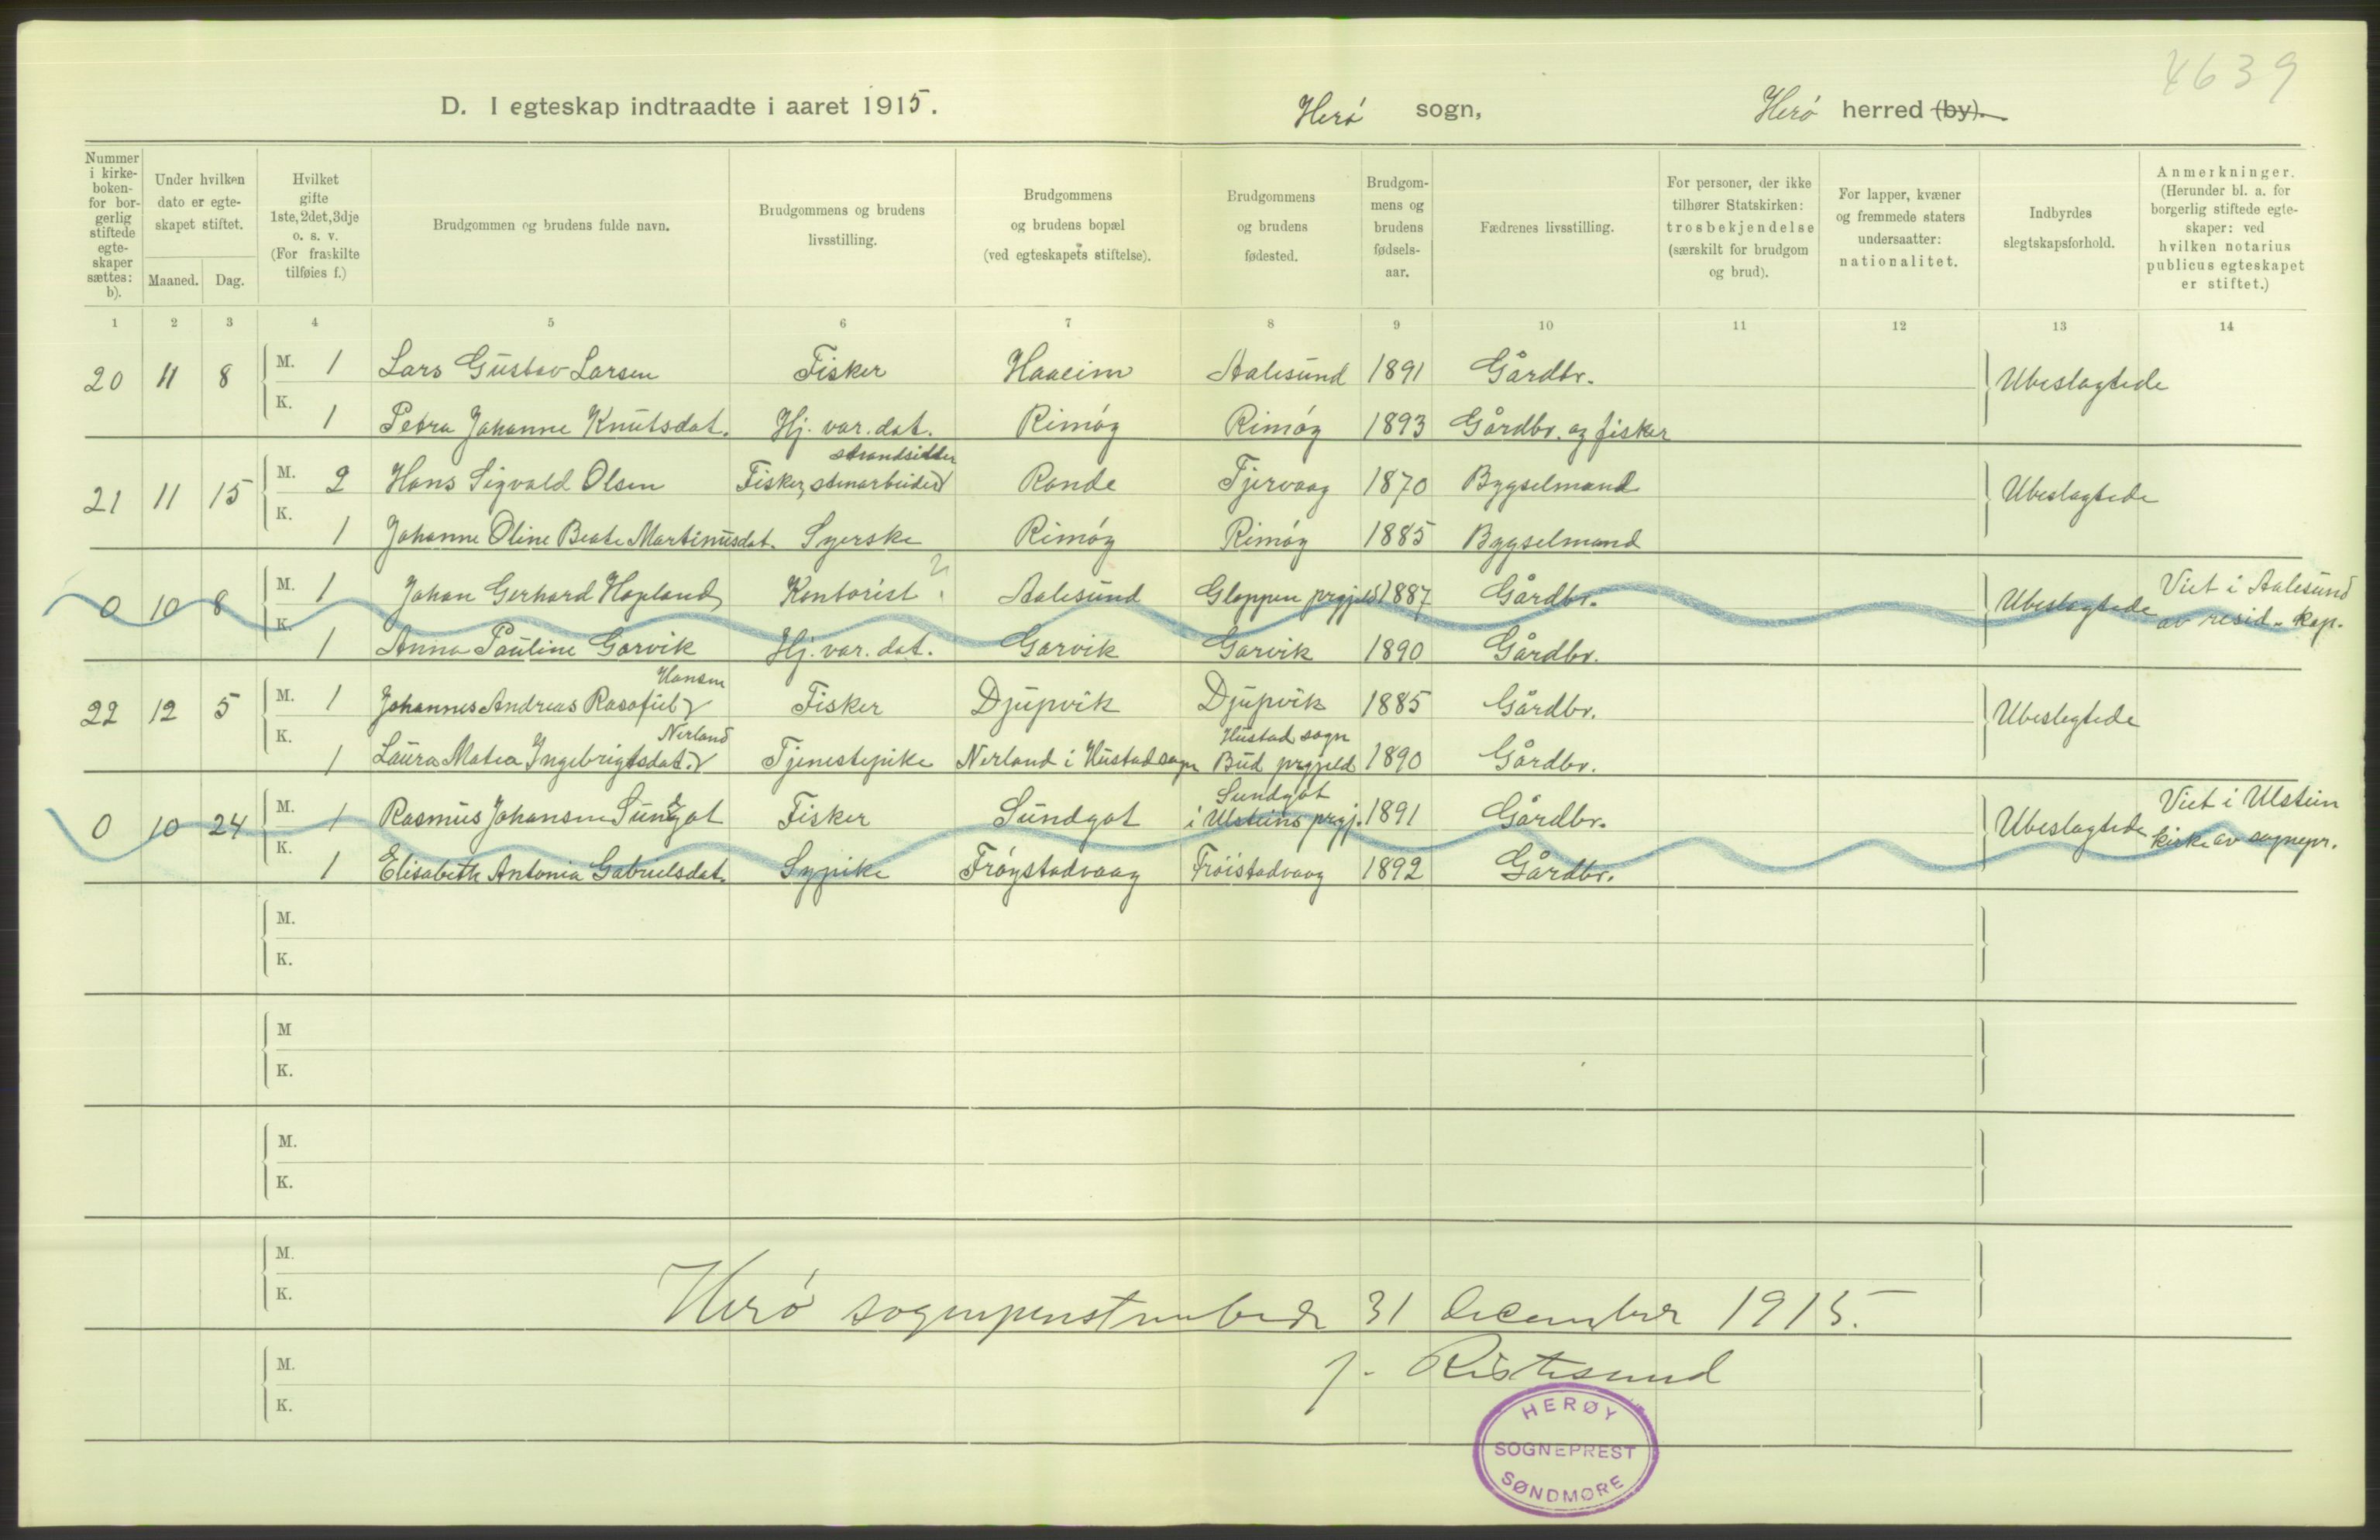 4639
D. I egteskap indtraadte i aaret 1915. Herø sogn, Herø herred (by).
Nummer i kirke-boken- for bor-gerlig stiftede egte-skaper sættes: b). Under hvilken dato er egte-skapet stiftet. Maaned. Dag. Hvilket gifte 1ste, 2det, 3dje o. s. v. (For fraskilte tilføies f.) Brudgommen og brudens fulde navn. Brudgommens og brudens livsstilling. Brudgommens og brudens bopæl (ved egteskapets stiftelse). Brudgommens og brudens fødested. Brudgom-mens og brudens fødsels-aar. Fædrenes livsstilling. For personer, der ikke tilhører Statskirken: trosbekjendelse (særskilt for brudgom og brud). For lapper, kvæner og fremmede staters undersaatter: nationalitet. Indbyrdes slegtskapsforhold. Anmerkninger. (Herunder bl. a. for borgerlig stiftede egte-skaper: ved hvilken notarius publicus egteskapet er stiftet.)
1 2 3 4 5 6 7 8 9 10 11 12 13 14
20 11 8 M. 1 Lars Gustav Larsen Fisker Haaeim Aalesund 1891 Gårdbr. Ubeslagtede
K. 1 Petra Johanne Knutsdat. Hj. var. dat. Rimøy Rimøy 1893 Gårdbr. og fisker
strandsidder
21 11 15 M. 2 Hans Sigvald Olsen Fisker, stenarbeider Rande Tjervaag 1870 Bygselmand Ubeslagtede
K. 1 Johanne Oline Beate Martinusdat. Syerske Rimøy Rimøy 1885 Bygselmand
0 10 8 M. 1 Johan Gerhard Hopland Kontorist Aalesund Gloppen prgjeld 1887 Gårdbr. Ubeslagtede Viet i Aalesund av resid. kap.
K. 1 Anna Pauline Garvik Hj. var. dat. Garvik Garvik 1890 Gårdbr.
Hansen
22 12 5 M. 1 Johannes Andreas Rasofiel Fisker Djupvik Djupvik 1885 Gårdbr. Ubeslegtede
Nerland Hustad sogn
K. 1 Laura Matea Ingebrigtsdat. Tjenestepike Nerland i Hustad sogn Bud prgjeld 1890 Gårdbr.
Sundgot
0 10 24 M. 1 Rasmus Johansen Sundgot Fisker Sundgot i Ulsteins prgj. 1891 Gårdbr. Ubeslagtede Viet i Ulstein kirke av sognepr.
K. 1 Elisabeth Antonia Gabrielsdat. Sypike Frøystadvaag Frøistadvaag 1892 Gårdbr.
M.
K.
M
K.
M.
K.
M.
K.
Herø sogneprestembede 31 december 1915.
M.
K.
J. Ristesund
HERØY
SOGNEPREST
SØNDMØRE